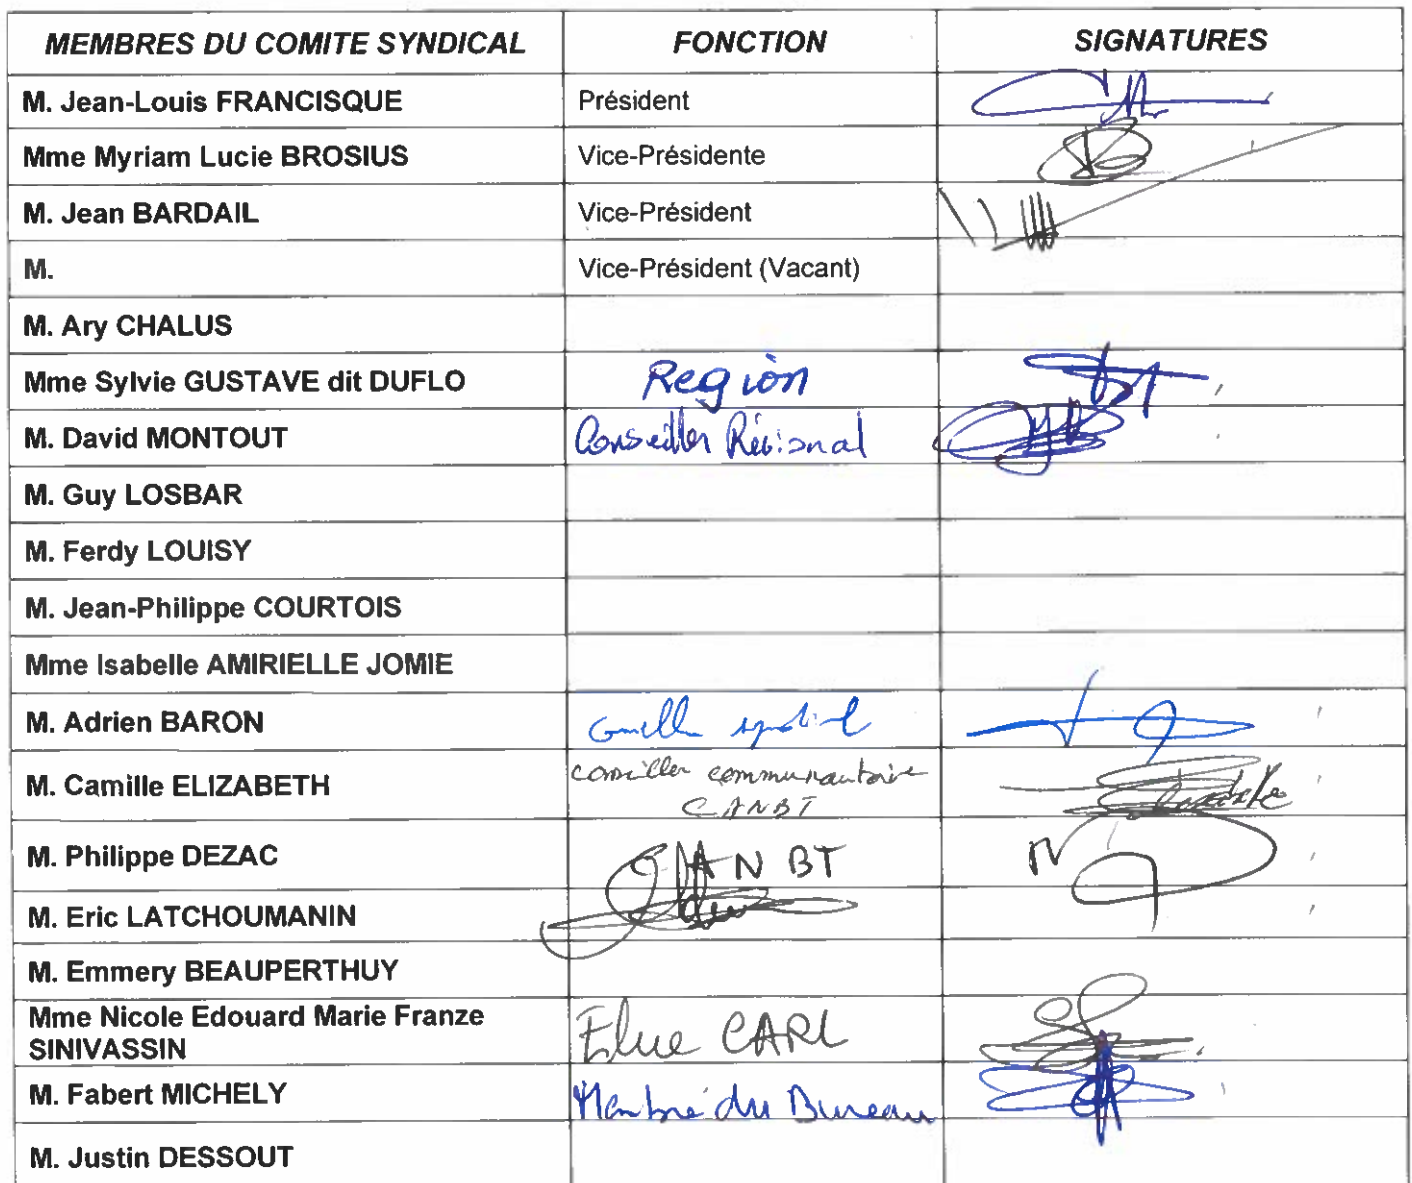 MEMBRES DU COMITE SYNDICAL FONCTION SIGNATURES
M. Jean-Louis FRANCISQUE Président
Mme Myriam Lucie BROSIUS Vice-Présidente
M. Jean BARDAIL Vice-Président
M. Vice-Président (Vacant)
M. Ary CHALUS
Mme Sylvie GUSTAVE dit DUFLO Region
M. David MONTOUT Conseiller Régional
M. Guy LOSBAR
M. Ferdy LOUISY
M. Jean-Philippe COURTOIS
Mme Isabelle AMIRIELLE JOMIE
M. Adrien BARON
M. Camille ELIZABETH conseiller communautaire
CANBT
M. Philippe DEZAC CANBT
M. Eric LATCHOUMANIN
M. Emmery BEAUPERTHUY
Mme Nicole Edouard Marie Franze
SINIVASSIN Elue CARL
M. Fabert MICHELY Membre du Bureau
M. Justin DESSOUT